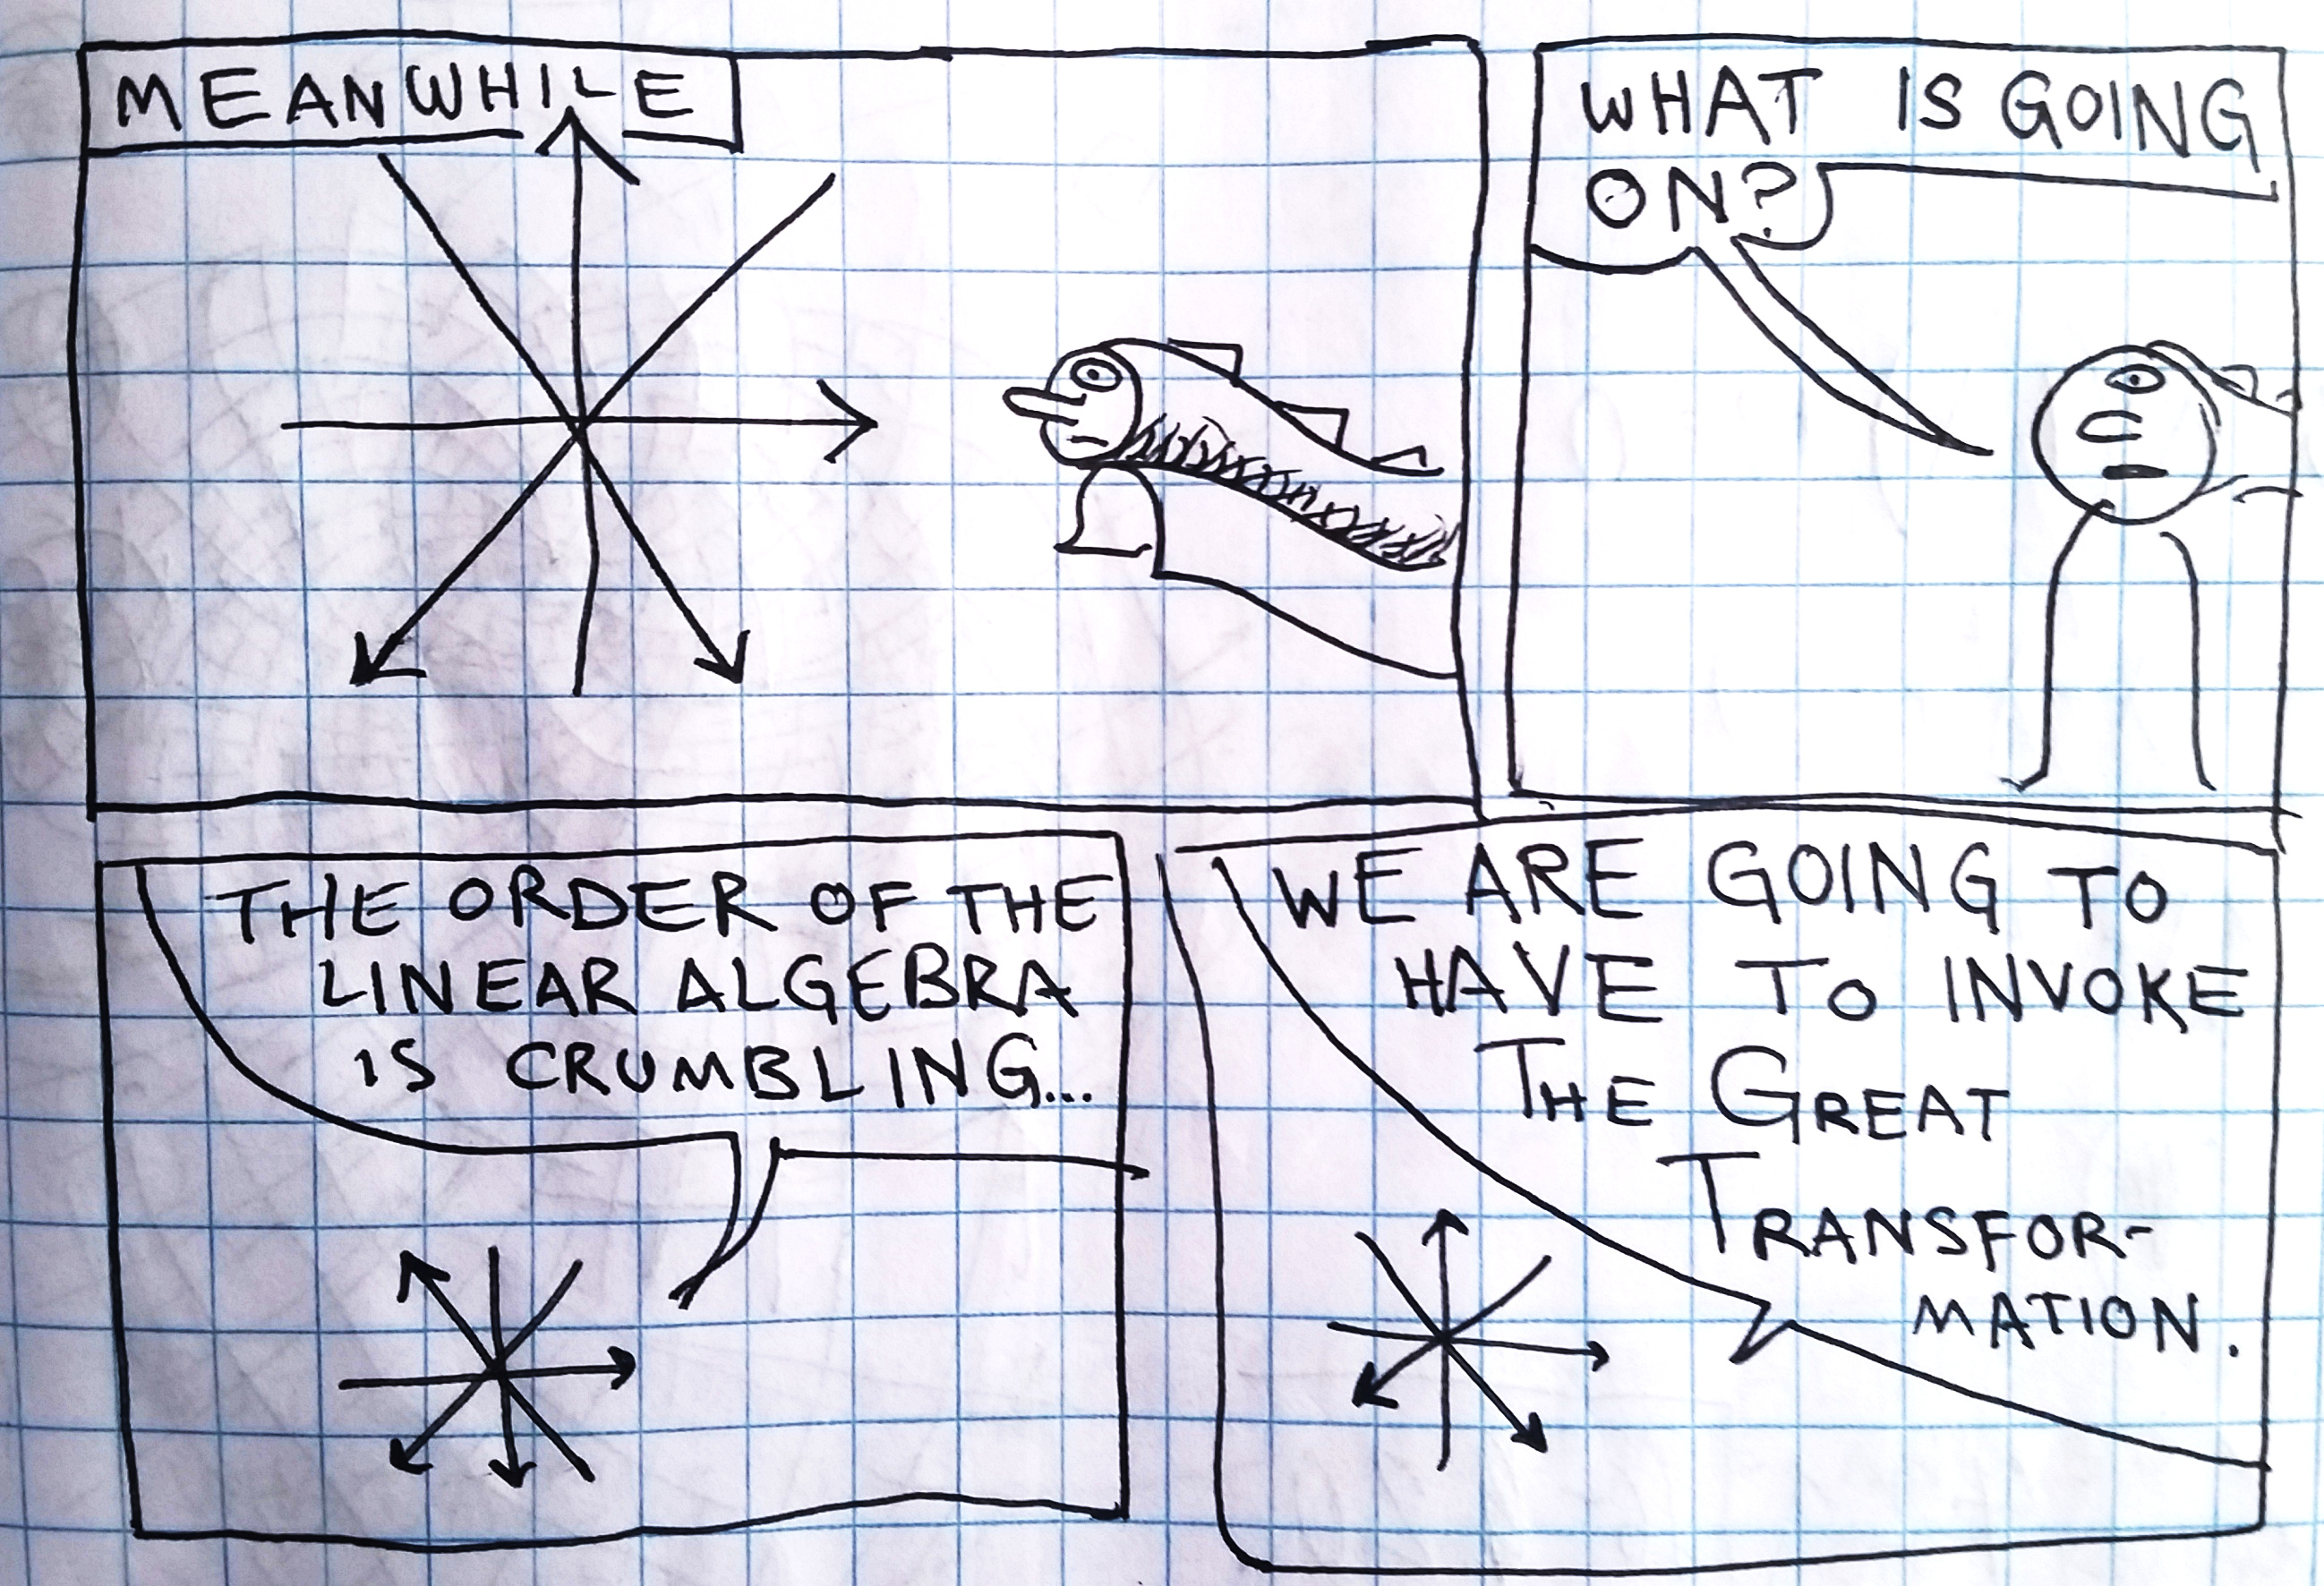 MEANWHILE
WHAT IS GOING
ON?
THE ORDER OF THE
LINEAR ALGEBRA
IS CRUMBLING...
WE ARE GOING TO
HAVE TO INVOKE
THE GREAT
TRANSFOR-
MATION.